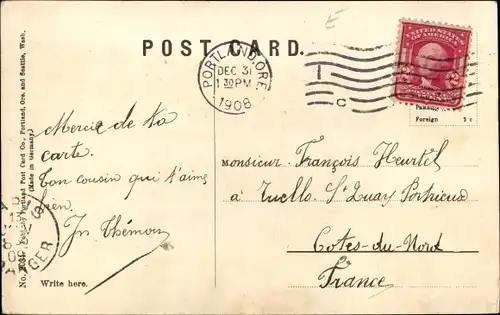 POST CARD.
UNITED STATES OF AMERICA
PORTLAND, ORE.
DEC 31
1 30 PM
1908
C
Foreign
Mercie de ta
carte.
Ton cousin qui t'aime
bien.
Write here.
MONSIEUR. François Heurtel
à St Quay Portrieux
Cotes-du-Nord
France
Portland Post Card Co., Portland, Ore. and Seattle, Wash.
(Made in Germany)
No.